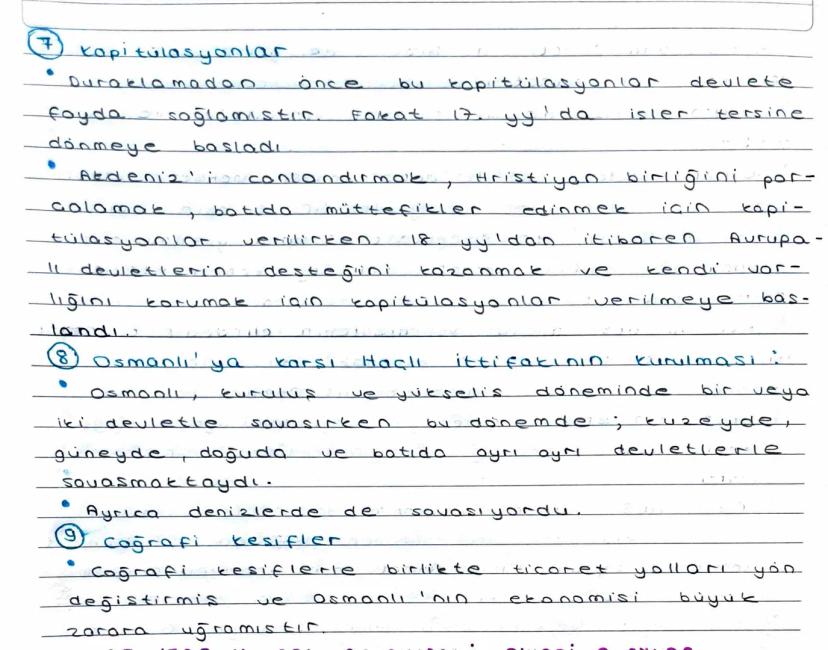 7 Kapitülasyonlar
• Duraklamadan önce bu kapitülasyonlar devlete
fayda sağlamıştır. Fakat 17. yy'da işler tersine
dönmeye başladı
• Akdeniz'i canlandırmak, Hristiyan birliğini par-
çalamak, batıda müttefikler edinmek için kapi-
tülasyonlar verilirken 18. yy'dan itibaren Avrupa-
lı devletlerin desteğini kazanmak ve kendi var-
lığını korumak için kapitülasyonlar verilmeye baş-
landı.
8 Osmanlı'ya karşı Haçlı ittifakının kurulması:
• Osmanlı, kuruluş ve yükseliş döneminde bir veya
iki devletle savaşırken bu dönemde; kuzeyde,
güneyde, doğuda ve batıda ayrı ayrı devletlerle
savaşmaktaydı.
• Ayrıca denizlerde de savaşıyordu.
9 Coğrafi keşifler
• Coğrafi keşiflerle birlikte ticaret yolları yön
değiştirmiş ve Osmanlı'nın ekonomisi büyük
zarara uğramıştır.